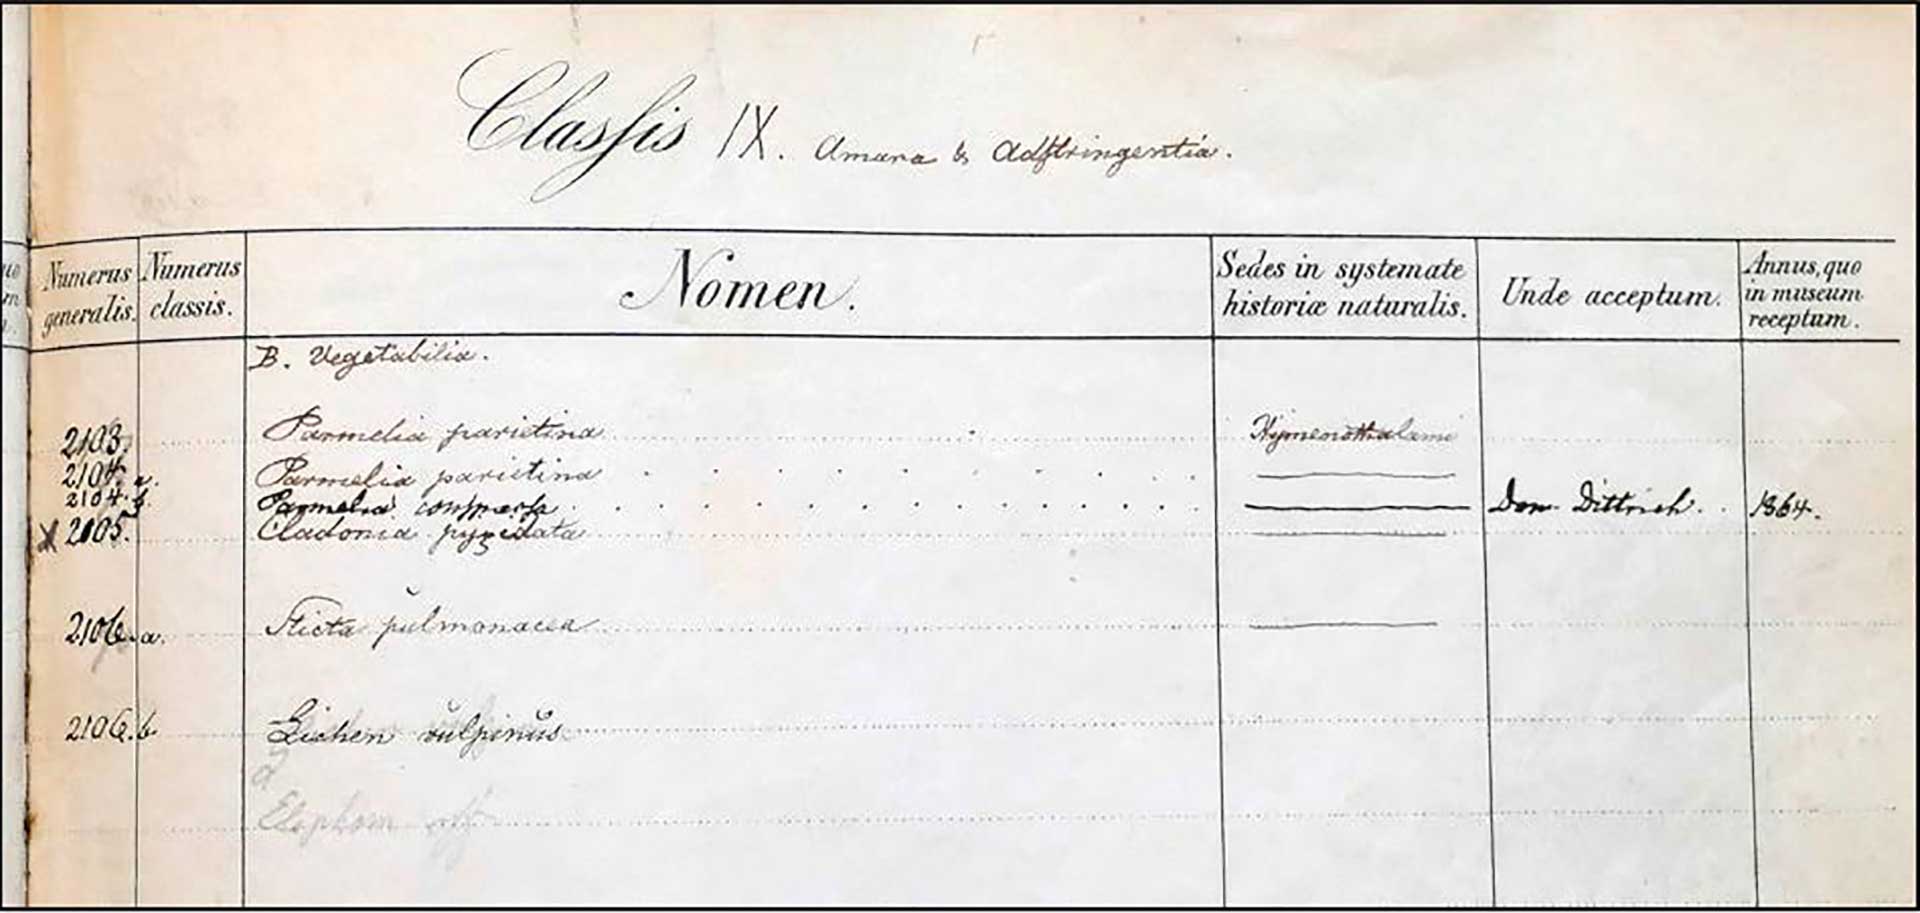 Classis IX. Amara & Adstringentia.
Numerus generalis. Numerus classis. Nomen. Sedes in systemate historiæ naturalis. Unde acceptum. Annus, quo in museum receptum.
B. Vegetabilia.
2103. Parmelia parietina Hymenothalami
2104. a. Parmelia parietina
2104. b. Parmelia conspersa Dom. Dittrich. 1864.
X 2105. Cladonia pyxidata
2106. a. Sticta pulmonacea
2106. b. Lichen vulpinus